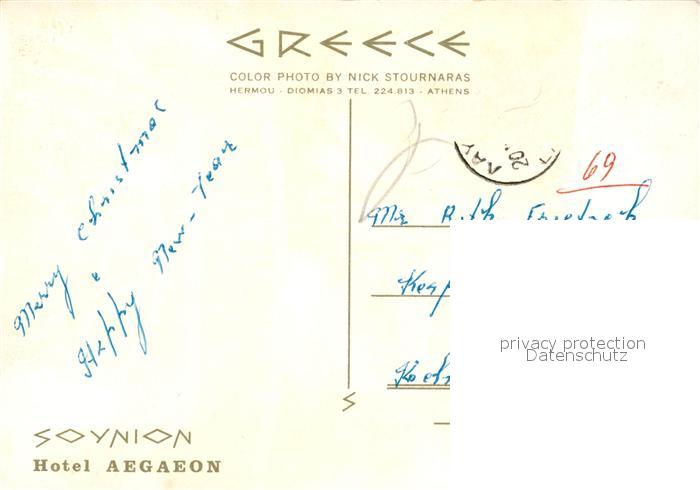 GREECE
COLOR PHOTO BY NICK STOURNARAS
HERMOU - DIOMIAS 3 TEL. 224.813 - ATHENS
Merry Christmas
e
Happy New-Year
69
Mr Ruth Friedrich
privacy protection
Datenschutz
SOYNION
Hotel AEGAEON